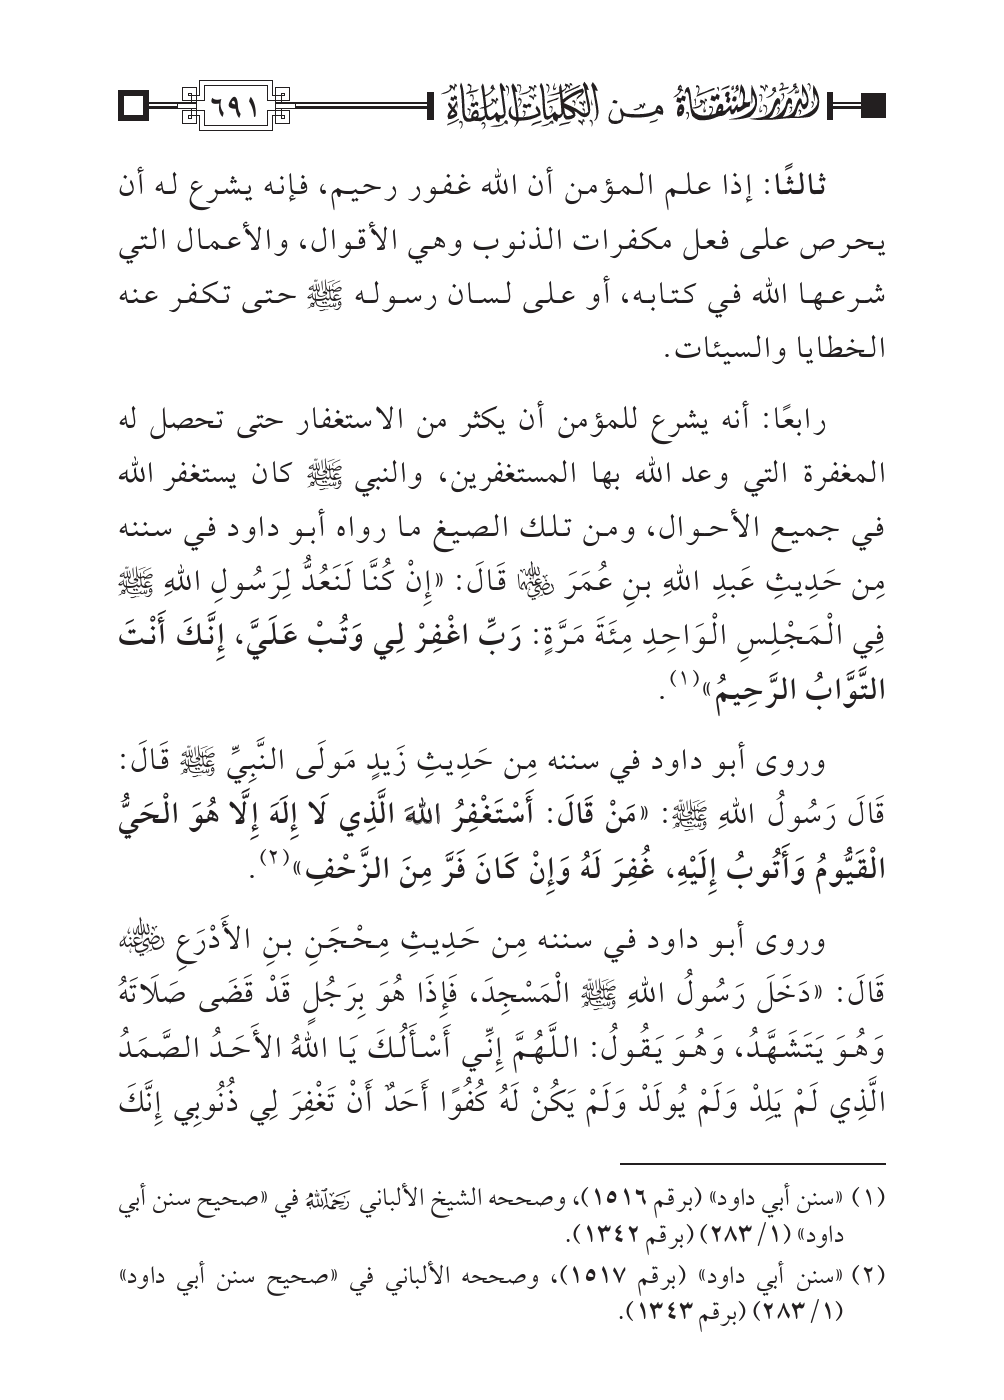 الدرر المنتقاة من الكلمات الملقاة ٦٩١
ثالثًا: إذا علم المؤمن أن الله غفور رحيم، فإنه يشرع له أن
يحرص على فعل مكفرات الذنوب وهي الأقوال، والأعمال التي
شرعها الله في كتابه، أو على لسان رسوله ﷺ حتى تكفر عنه
الخطايا والسيئات.
رابعًا: أنه يشرع للمؤمن أن يكثر من الاستغفار حتى تحصل له
المغفرة التي وعد الله بها المستغفرين، والنبي ﷺ كان يستغفر الله
في جميع الأحوال، ومن تلك الصيغ ما رواه أبو داود في سننه
مِن حَدِيثِ عَبدِ اللهِ بنِ عُمَرَ رضي الله عنهما قَالَ: «إِنْ كُنَّا لَنَعُدُّ لِرَسُولِ اللهِ ﷺ
فِي الْمَجْلِسِ الْوَاحِدِ مِئَةَ مَرَّةٍ: رَبِّ اغْفِرْ لِي وَتُبْ عَلَيَّ، إِنَّكَ أَنْتَ
التَّوَّابُ الرَّحِيمُ»(١).
وروى أبو داود في سننه مِن حَدِيثِ زَيدٍ مَولَى النَّبِيِّ ﷺ قَالَ:
قَالَ رَسُولُ اللهِ ﷺ: «مَنْ قَالَ: أَسْتَغْفِرُ اللهَ الَّذِي لَا إِلَهَ إِلَّا هُوَ الْحَيُّ
الْقَيُّومُ وَأَتُوبُ إِلَيْهِ، غُفِرَ لَهُ وَإِنْ كَانَ فَرَّ مِنَ الزَّحْفِ»(٢).
وروى أبو داود في سننه مِن حَدِيثِ مِحْجَنِ بنِ الأَدْرَعِ رضي الله عنه
قَالَ: «دَخَلَ رَسُولُ اللهِ ﷺ الْمَسْجِدَ، فَإِذَا هُوَ بِرَجُلٍ قَدْ قَضَى صَلَاتَهُ
وَهُوَ يَتَشَهَّدُ، وَهُوَ يَقُولُ: اللَّهُمَّ إِنِّي أَسْأَلُكَ يَا اللهُ الأَحَدُ الصَّمَدُ
الَّذِي لَمْ يَلِدْ وَلَمْ يُولَدْ وَلَمْ يَكُنْ لَهُ كُفُوًا أَحَدٌ أَنْ تَغْفِرَ لِي ذُنُوبِي إِنَّكَ
(١) «سنن أبي داود» (برقم ١٥١٦)، وصححه الشيخ الألباني رحمه الله في «صحيح سنن أبي
داود» (١/ ٢٨٣) (برقم ١٣٤٢).
(٢) «سنن أبي داود» (برقم ١٥١٧)، وصححه الألباني في «صحيح سنن أبي داود»
(١/ ٢٨٣) (برقم ١٣٤٣).